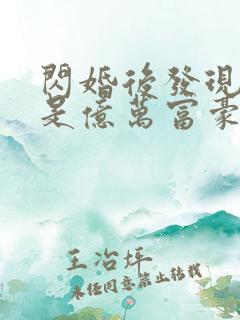 閃婚後發現
是億萬富豪
王冶坪
未任同意禁止轉載